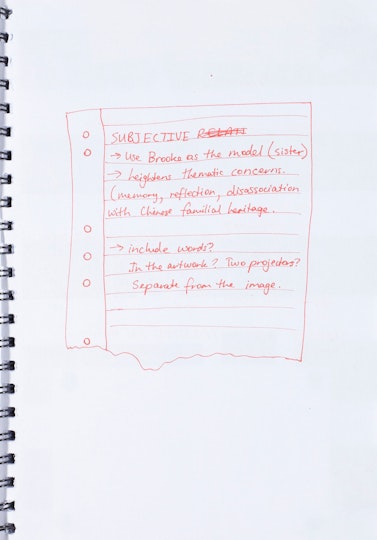 SUBJECTIVE RELATI
→ Use Brooke as the model (sister)
→ heightens thematic concerns.
(memory, reflection, disassociation
with Chinese familial heritage.
→ include words?
In the artwork? Two projectors?
Separate from the image.